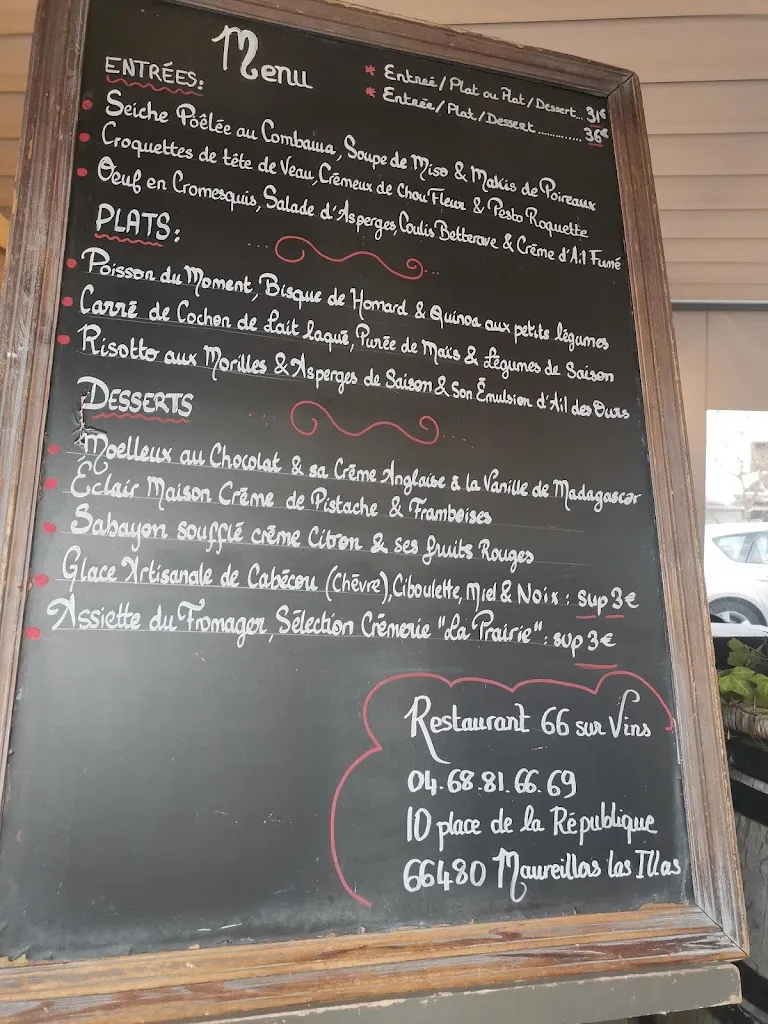 Menu
* Entrée/Plat ou Plat/Dessert... 31€
* Entrée/Plat/Dessert ............. 36€
ENTRÉES:
Seiche Poêlée au Combawa, Soupe de Miso & Makis de Poireaux
Croquettes de tête de Veau, Crémeux de Chou Fleur & Pesto Roquette
Oeuf en Cromesquis, Salade d'Asperges, Coulis Betterave & Crème d'Ail Fumé
PLATS:
Poisson du Moment, Bisque de Homard & Quinoa aux petits légumes
Carré de Cochon de Lait laqué, Purée de Maïs & Légumes de Saison
Risotto aux Morilles & Asperges de Saison & Son Émulsion d'Ail des Ours
DESSERTS
Moelleux au Chocolat & sa Crème Anglaise à la Vanille de Madagascar
Éclair Maison Crème de Pistache & Framboises
Sabayon soufflé crème Citron & ses fruits Rouges
Glace Artisanale de Cabécou (Chèvre), Ciboulette, Miel & Noix : sup 3€
Assiette du Fromager, Sélection Crèmerie "La Prairie" : sup 3€
Restaurant 66 sur Vins
04.68.81.66.69
10 place de la République
66480 Maureillas las Illas